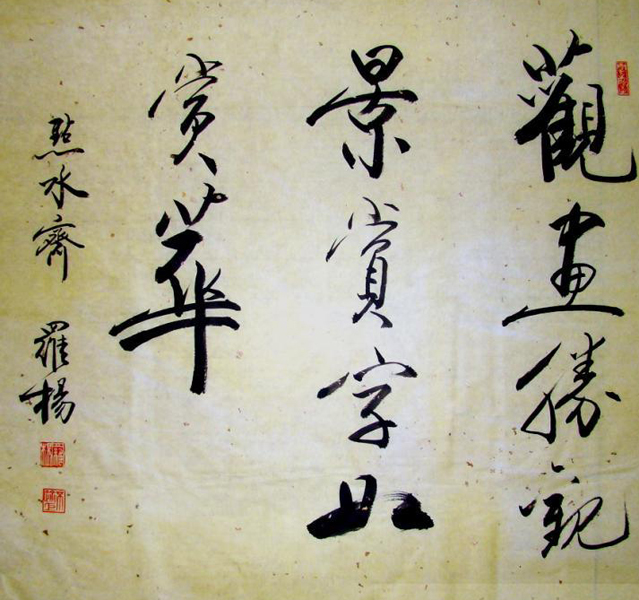 觀畫勝觀
景賞字如
賞華
點水齋 羅楊